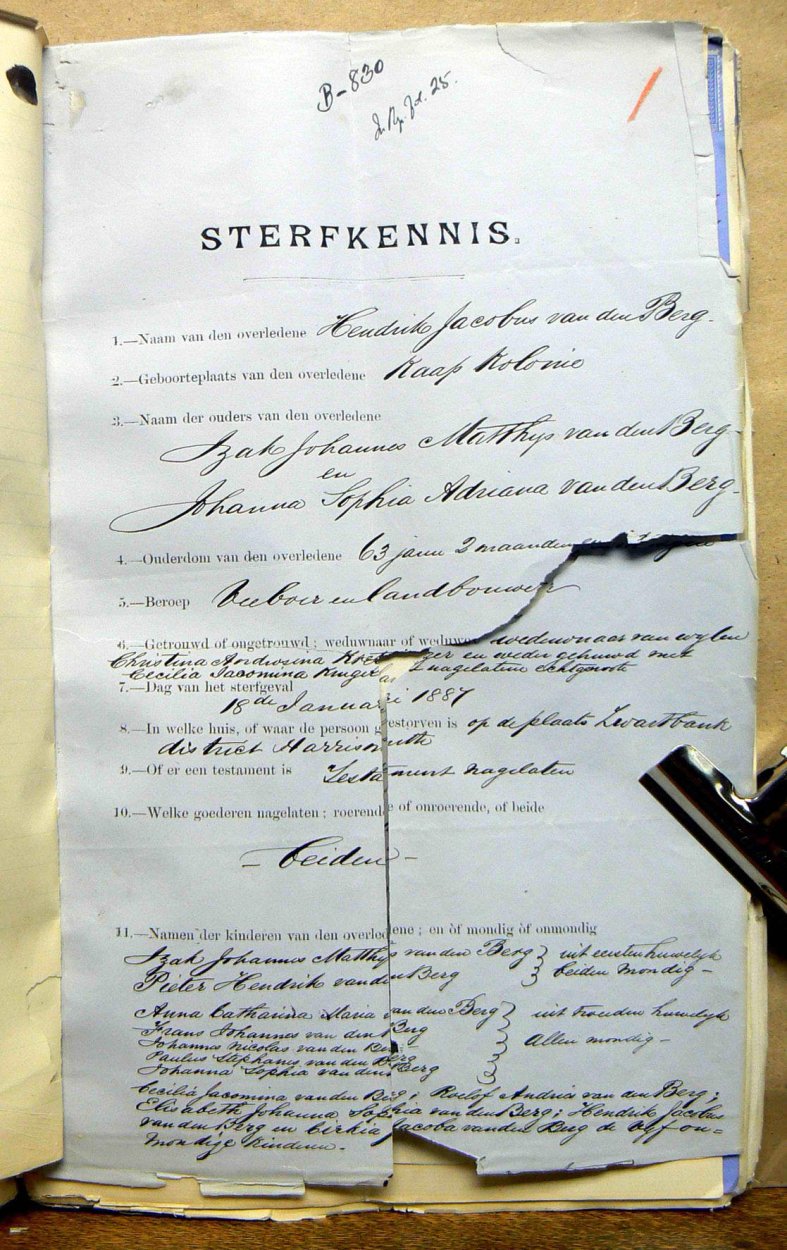 B-830
25.
STERFKENNIS.
1.—Naam van den overledene Hendrik Jacobus van den Berg.
2.—Geboorteplaats van den overledene Kaap Kolonie
3.—Naam der ouders van den overledene
Izak Johannes Matthys van den Berg-
en
Johanna Sophia Adriana van den Berg-
4.—Ouderdom van den overledene 63 jaren 2 maanden en
5.—Beroep Veeboer en landbouwer
6.—Getrouwd of ongetrouwd; weduwnaar of weduwe weduwnaar van wylen
Christina Andriesina en weder gehuwd met
Cecilia Jacomina Kruger nagelaten echtgenoote
7.—Dag van het sterfgeval
18de Januari 1887
8.—In welke huis, of waar de persoon gestorven is op de plaats Zwartbank
district Harrismith
9.—Of er een testament is Testament nagelaten
10.—Welke goederen nagelaten; roerende of onroerende, of beide
— beiden —
11.—Namen der kinderen van den overledene; en òf mondig òf onmondig
Izak Johannes Matthys van den Berg } uit eersten huwelyk
Pieter Hendrik van den Berg } beiden mondig —
Anna Catharina Maria van den Berg } uit tweeden huwelyk
Frans Johannes van den Berg
Johannes Nicolas van den Berg } Allen mondig —
Paulus Stephanus van den Berg
Johanna Sophia van den Berg
Cecilia Jacomina van den Berg; Roelof Andries van den Berg;
Elisabeth Johanna Sophia van den Berg; Hendrik Jacobus
van den Berg en Jacoba van den Berg de vyf on=
mondige kinderen.